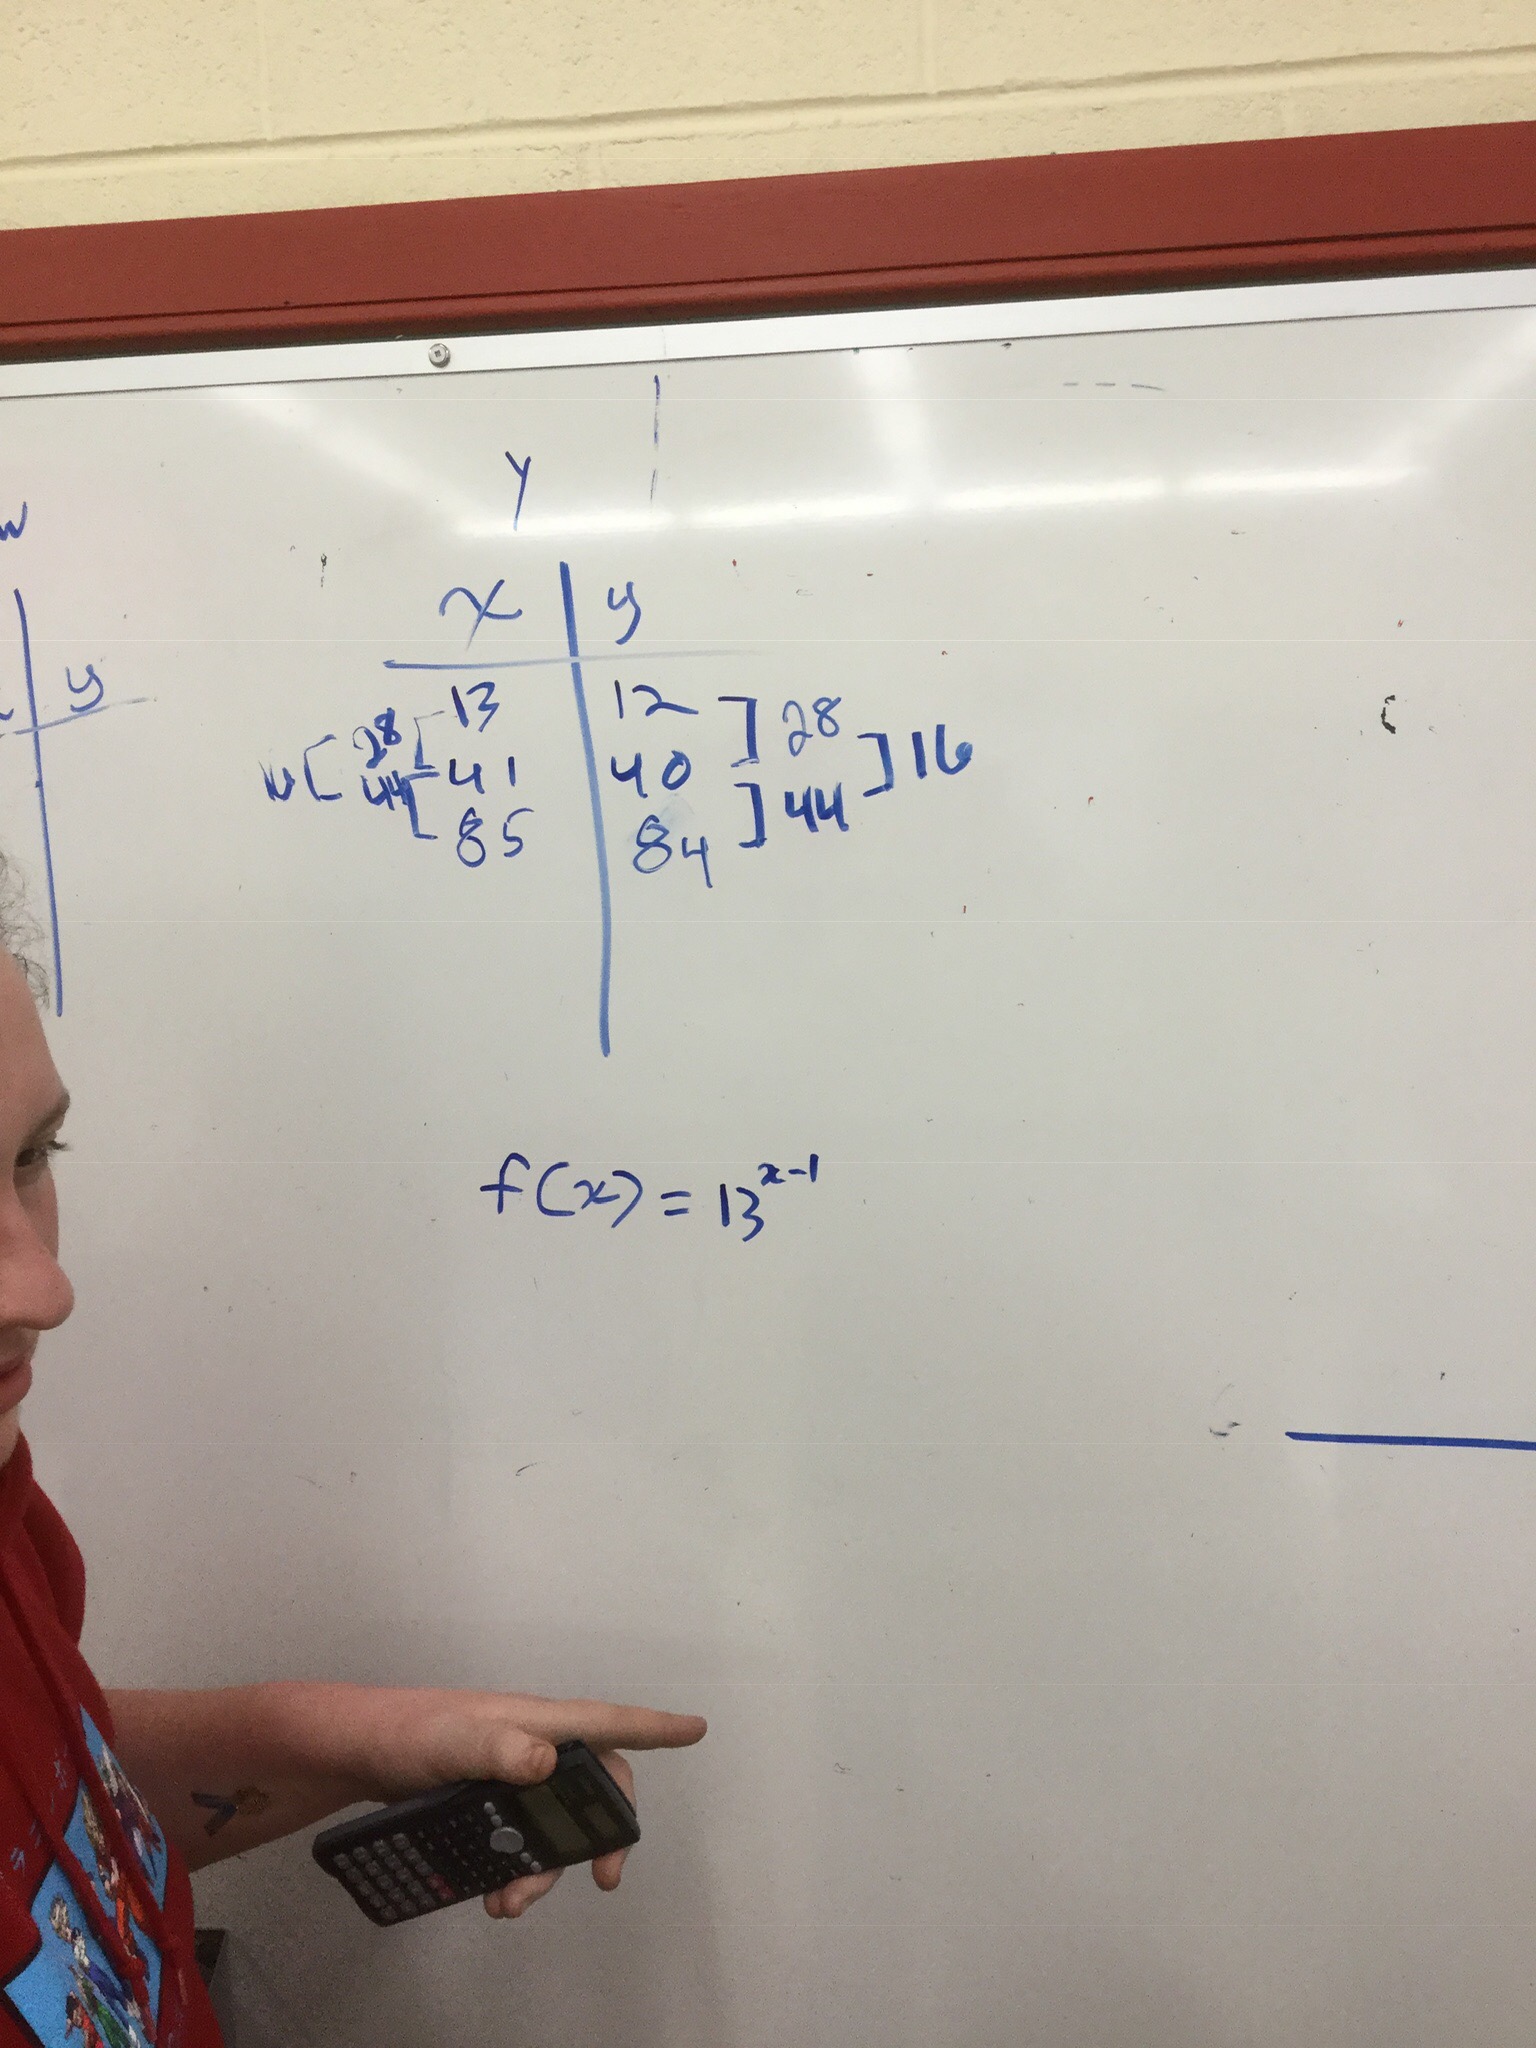 y
w
x y
y
13 12 ] 28
28 [
41 40 ] 16
44 [
85 84 ] 44
f(x) = 13^x-1